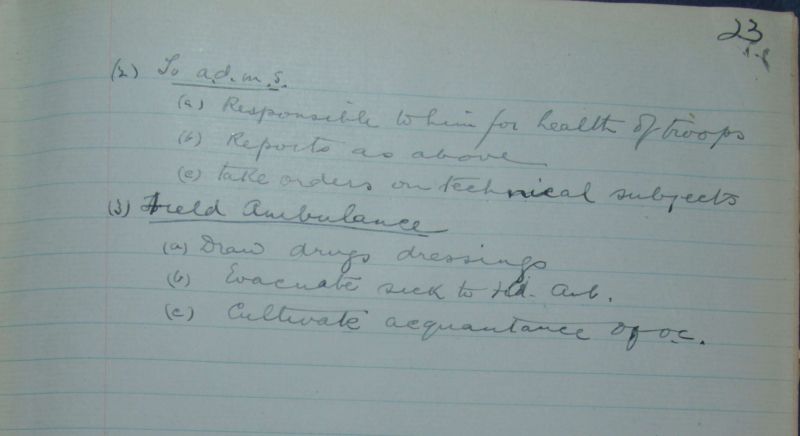 23
(2) To a.d.m.s.
(a) Responsible to him for health of troops
(b) Reports as above
(c) take orders on technical subjects
(3) Field Ambulance
(a) Draw drugs dressings
(b) Evacuate sick to Fd. Amb.
(c) Cultivate acquantance of o.c.